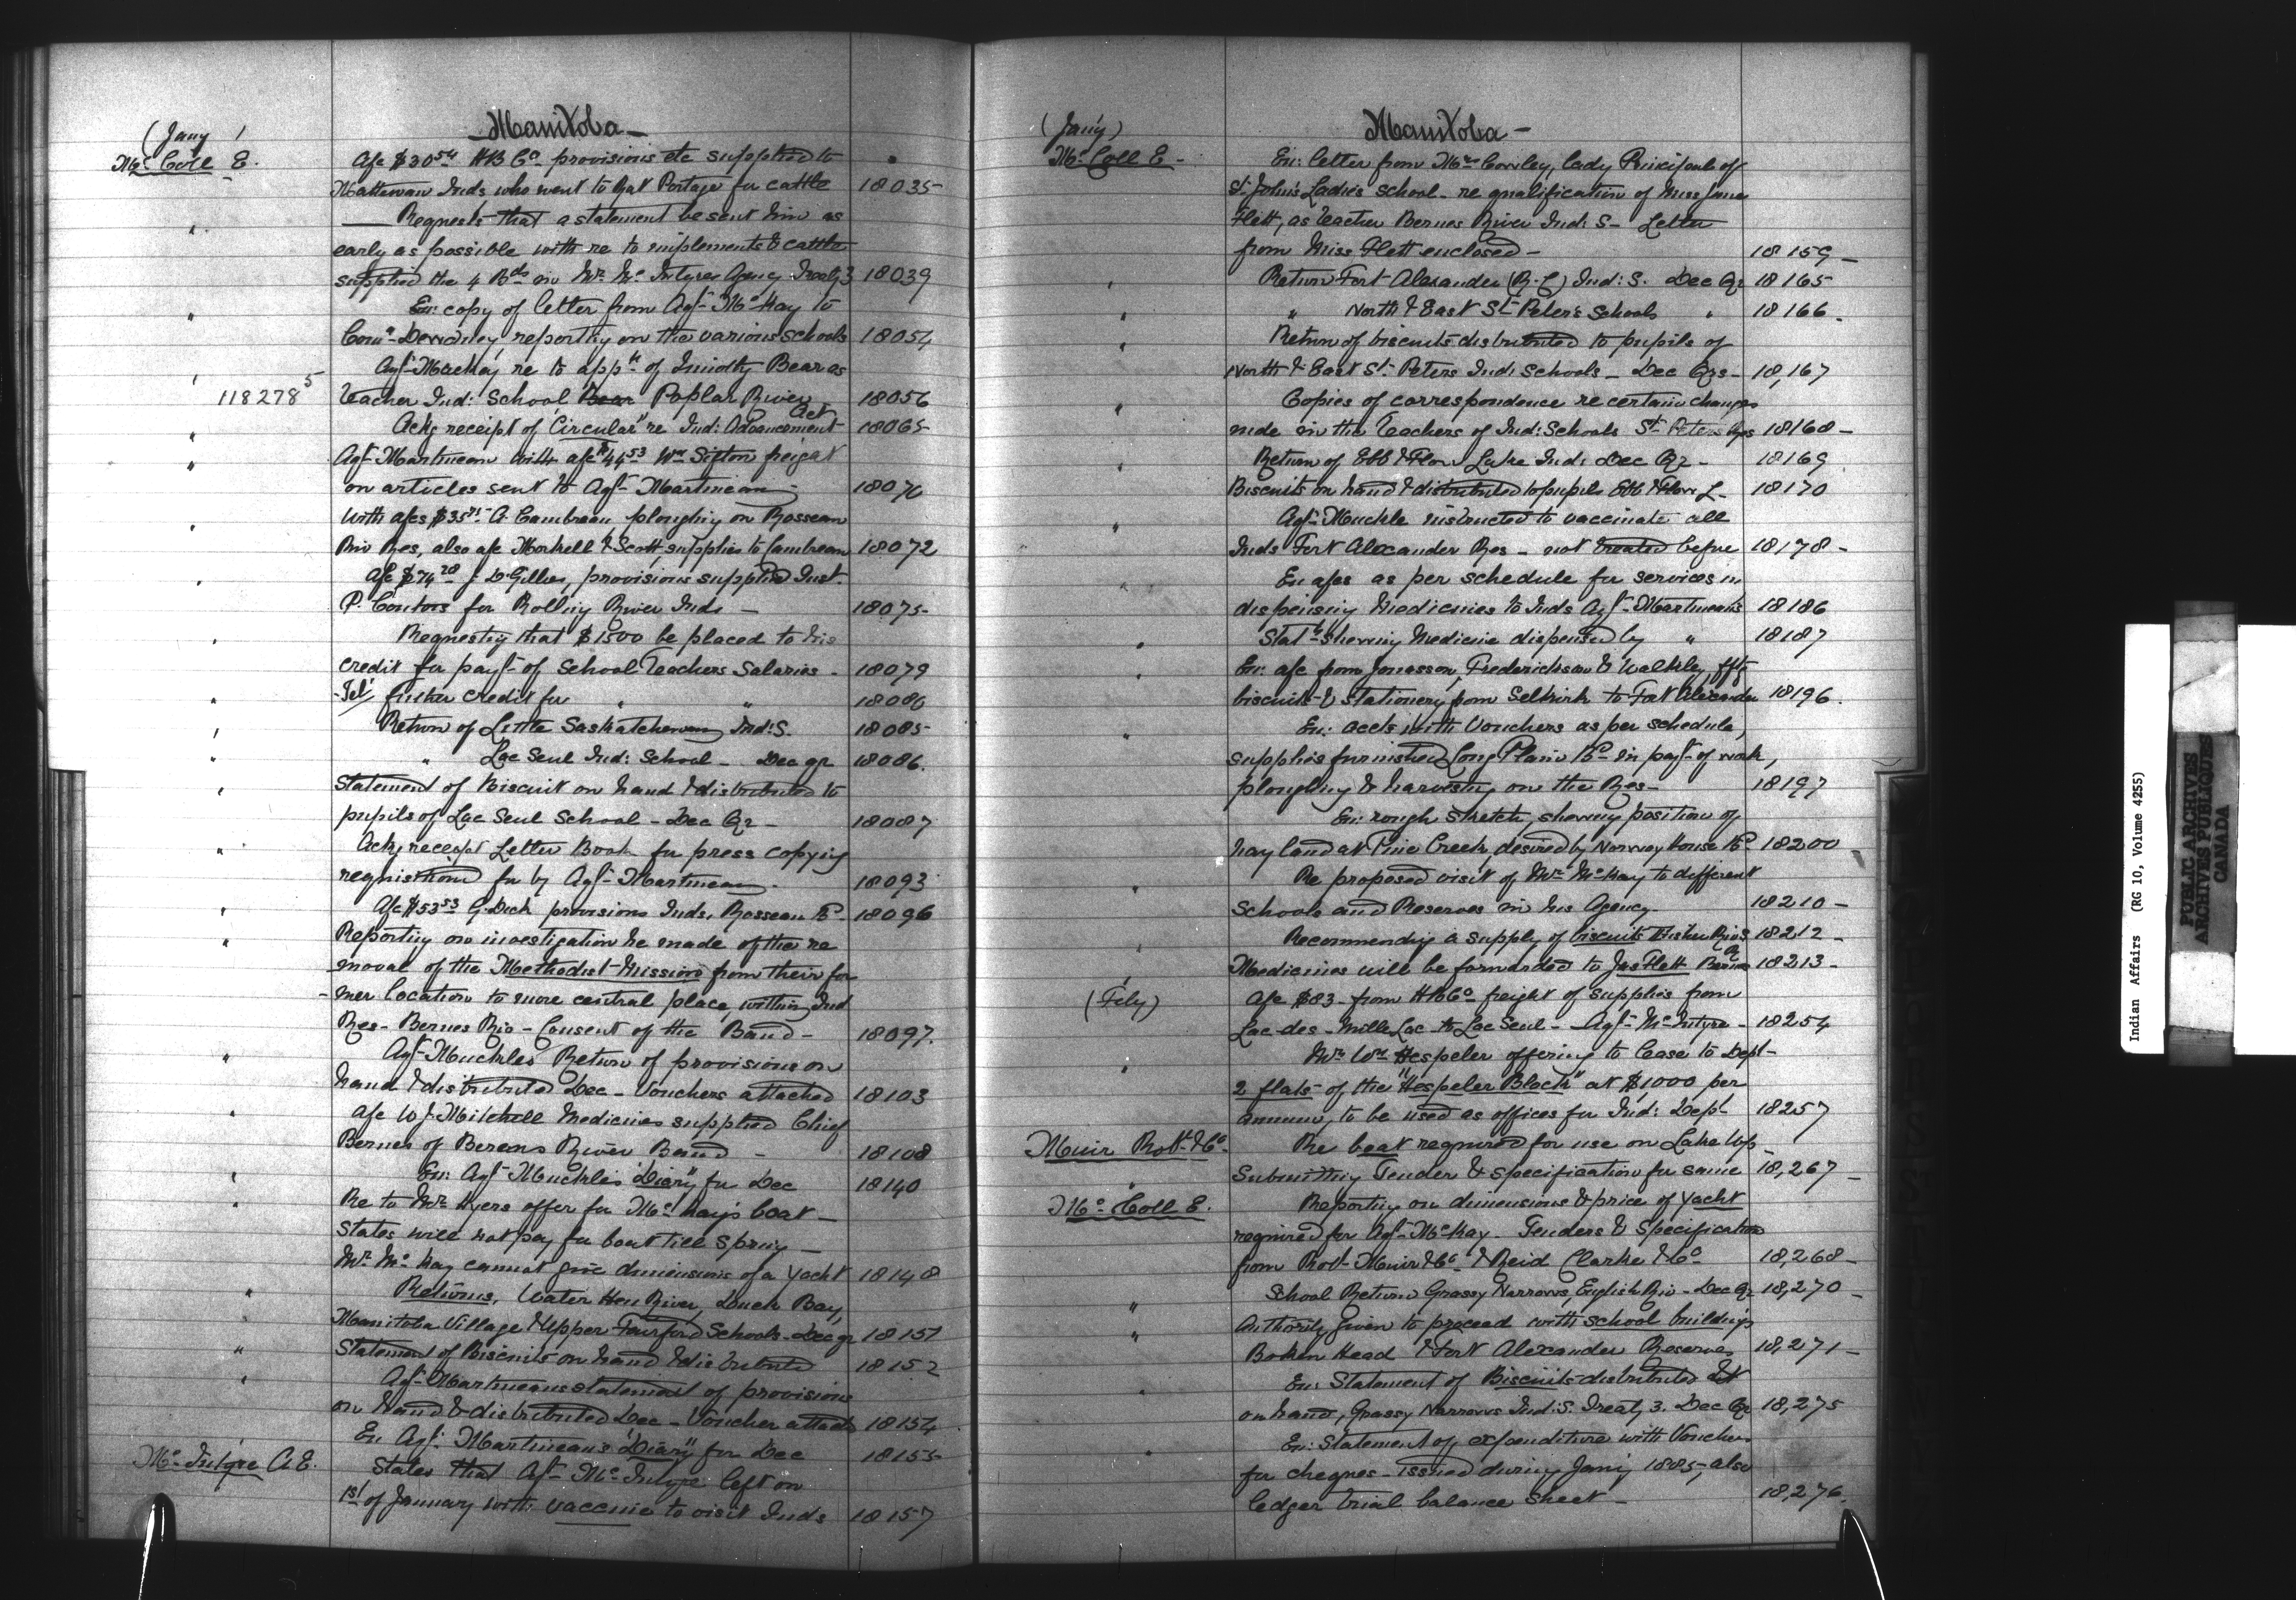 (Jany)
Manitoba
McColl E.
A/c $30.54 HB Co provisions etc supplied to
Inds who went to Rat Portage for cattle 18035
" Requests that a statement be sent him as
early as possible with re to implements & cattle
supplied the 4 Bds in Mr. McIntyres Agency Treaty 3 18039
" En: copy of letter from Agt McKay to
Comr Dewdney reporting on the various schools 18054
' Agt Mackay re to appt of Timothy Bear as
118278 5 Teacher Ind: School Bear Poplar River 18056
" Ackg receipt of Circular re Ind: Advancement Act 18065
" Agt Martineau with a/c $44.53 Wm Sifton freight
on articles sent to Agt Martineau 18070
" With a/cs A. ploughing on Rosseau
Riv Res, also a/c & Scott supplies to 18072
" A/c $74.28 J. D. Gillies, provisions supplied Inst.
P. for Rolling River Inds — 18075
" Requesting that $1500 be placed to his
credit for payt of School Teachers Salaries - 18079
" Tel' further credit for " " 18080
" Return of Little Saskatchewan Ind: S. 18085
" " Lac Seul Ind: School - Dec qr 18086.
" Statement of Biscuit on hand & distributed to
pupils of Lac Seul School - Dec Qr - 18087
" Ackg receipt Letter Book for press copying
requisitioned for by Agt Martineau. 18093
" A/c $53.53 G. Dick provisions Inds, Rosseau R. 18096
" Reporting on investigation he made of the re
moval of the Methodist Mission from their for
-mer location to more central place, within Ind
Res - Bernes Riv - Consent of the Band - 18097.
" Agt Muckles Return of provisions on
hand & distributed Dec - Vouchers attached 18103
" A/c W. J. Mitchell Medicines supplied Chief
Bernes of Berens River Band - 18108
" En: Agt Muckles "Diary" for Dec 18140
" Re to Mr. Myers offer for McKay's boat -
States will not pay for boat till spring -
Mr. McKay cannot give dimensions of a yacht 18148
" Returns, Water Hen River, Duck Bay,
Manitoba Village & Upper Fairford Schools - Dec qr 18151
" Statement of Biscuits on hand & distributed 18152
" Agt Martineaus statement of provisions
on hand & distributed Dec - Voucher attachd 18154
En Agt Martineau's "Diary" for Dec 18155
McIntyre A.E. States that Agt McIntyre left on
1st of January with vaccine to visit Inds 18157
(Jany)
Manitoba -
McColl E -
En: letter from Mrs Cowley, Lady Principale of
St. John's Ladies school - re qualification of Miss Jane
Flett, as Teacher Bernes River Ind: S - Letter
from Miss Flett enclosed - 18159 -
" Return Fort Alexander (R.C) Ind: S. Dec Qr 18165
" " North & East St Peter's Schools " 18166.
" Return of biscuits distributed to pupils of
North & East St. Peters Ind: Schools - Dec Qrs - 18,167
" Copies of correspondence re certain changes
made in the Teachers of Ind: Schools St Peters Res 18168 -
" Return of Ebb & Flow Lake Ind: Dec Qr - 18169
Biscuits on hand & distributed to pupils Ebb & Flow L - 18170
" Agt Muckle instructed to vaccinate all
Inds Fort Alexander Res - not treated before 18178 -
" En a/cs as per schedule for services in
dispensing Medicines to Inds Agt Martineau's 18186
" Statt shewing Medicine dispensed by " 18187
" En: a/c from Jonasson, Frederickson & Walkley, ffts
biscuits & Stationery from Selkirk to Fort Alexander 18196.
" En: accts with Vouchers as per schedule,
supplies furnished Long Plain Bd in payt of work,
ploughing & harvesting on the Res - 18197
En: rough sketch, shewing position of
hay land at Pine Creek, desired by Norway House Bd 18200
" Re proposed visit of Mr McKay to different
schools and Reserves in his Agency - 18210 -
" Recommending a supply of biscuits Fisher Riv S 18212 -
Medicines will be forwarded to Jas Flett Bernes R 18213 -
(Feby) A/c $83 - from HBCo freight of supplies from
Lac des Mille Lac to Lac Seul - Agt McIntyre - 18254
" Mr Wm Hespeler offering to lease to Dept -
2 flats of the "Hespeler Block" at $1000 per
annum, to be used as offices for Ind: Dept 18257
Muir Robt & Co. Re boat required for use on Lake Wpg
Submitting Tender & Specification for same 18,267 -
McColl E. Reporting on dimensions & price of yacht
required for Agt McKay - Tenders & Specification
from Robt Muir & Co & Reid Clarke & Co 18,268 -
School Return Grassy Narrows, English Riv - Dec Qr 18,270 -
" Authority given to proceed with school buildings
Broken Head & Fort Alexander Reserves 18,271 -
" En: Statement of Biscuits distributed &
on hand, Grassy Narrows Ind: S. Treaty 3. Dec Qr 18,275
" En: Statement of expenditure with Vouchers
for cheques - issued during Jany 1885, also
ledger trial balance sheet - 18,276.
Indian Affairs (RG 10, Volume 4255)
PUBLIC ARCHIVES
ARCHIVES PUBLIQUES
CANADA